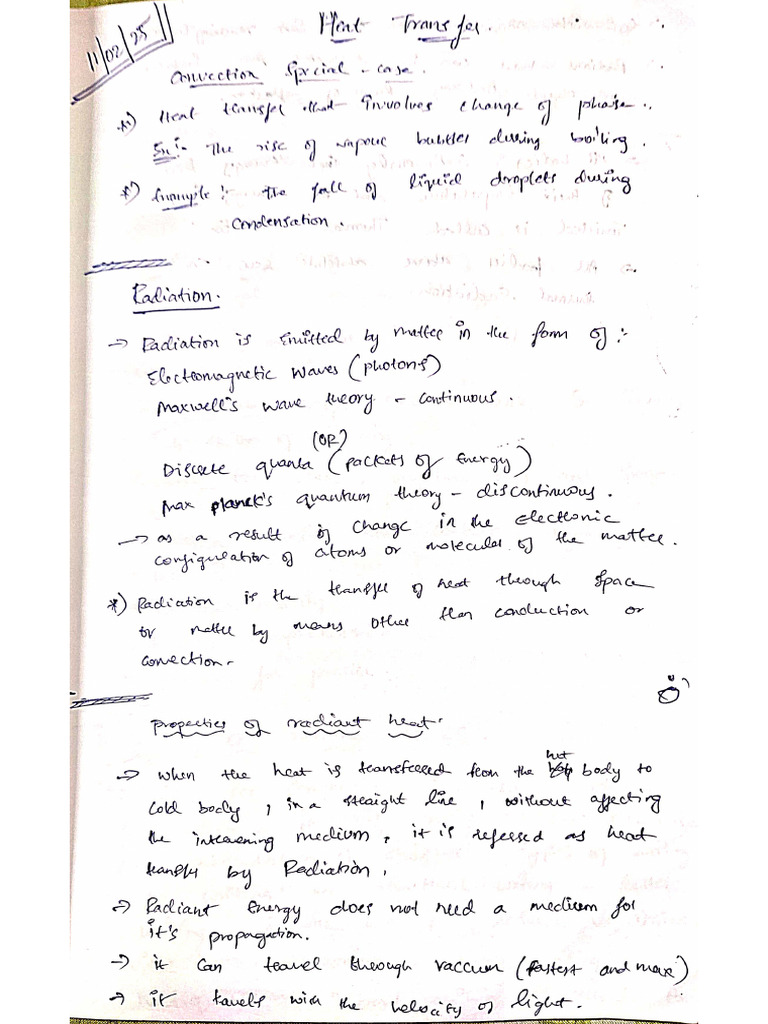 11/02/25
Heat Transfer.
Convection Special - case.
*) Heat transfer that involves change of phase.
Ex:- The rise of vapour bubbles during boiling.
*) Example :- The fall of liquid droplets during
condensation.
Radiation.
→ Radiation is emitted by matter in the form of :-
Electromagnetic waves (photons)
Maxwell's wave theory - continuous.
(OR)
Discrete quanta (packets of Energy)
Max planck's quantum theory - discontinuous.
→ as a result of change in the electronic
configuration of atoms or molecules of the matter.
*) Radiation is the transfer of heat through space
or matter by means other than conduction or
convection.
Properties of radiant heat.
→ when the heat is transferred from the hot body to
cold body, in a straight line, without affecting
the intervening medium, it is referred as heat
transfer by Radiation.
→ Radiant Energy does not need a medium for
it's propagation.
→ it can travel through vaccum (fastest and max)
→ it travels with the velocity of light.